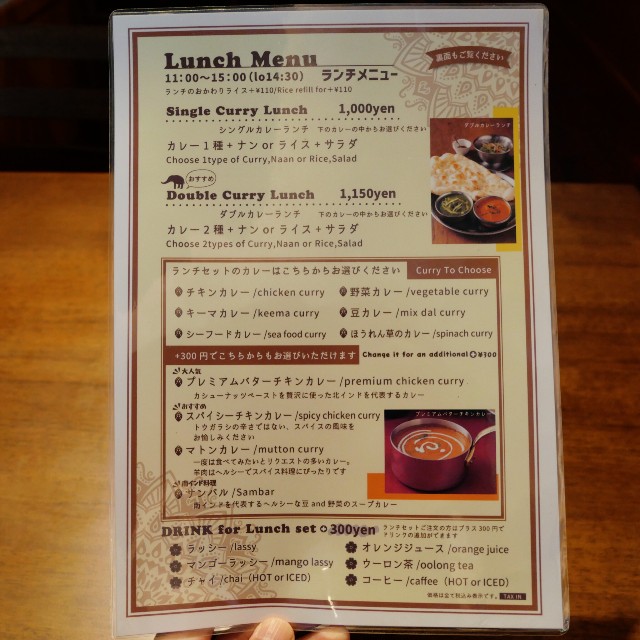 Lunch Menu
裏面もご覧ください
11:00～15:00(lo14:30) ランチメニュー
ランチのおかわりライス+¥110/Rice refill for+¥110
Single Curry Lunch 1,000yen
シングルカレーランチ 下のカレーの中からお選びください
カレー1種+ナン or ライス+サラダ
Choose 1type of Curry,Naan or Rice,Salad
ダブルカレーランチ
おすすめ
Double Curry Lunch 1,150yen
ダブルカレーランチ 下のカレーの中からお選びください
カレー2種+ナン or ライス+サラダ
Choose 2types of Curry,Naan or Rice,Salad
ランチセットのカレーはこちらからお選びください Curry To Choose
チキンカレー/chicken curry 野菜カレー/vegetable curry
キーマカレー/keema curry 豆カレー/mix dal curry
シーフードカレー/sea food curry ほうれん草のカレー/spinach curry
+300円でこちらからもお選びいただけます Change it for an additional✪¥300
大人気
プレミアムバターチキンカレー/premium chicken curry
カシューナッツペーストを贅沢に使った北インドを代表するカレー
おすすめ
スパイシーチキンカレー/spicy chicken curry
トウガラシの辛さではない、スパイスの風味を
お愉しみください
プレミアムバターチキンカレー
マトンカレー/mutton curry
一度は食べてみたいとリクエストの多いカレー。
羊肉はヘルシーでスパイス料理にぴったりです
南インド料理
サンバル/Sambar
南インドを代表するヘルシーな豆 and 野菜のスープカレー
DRINK for Lunch set✪300yen ランチセットご注文の方はプラス300円で
ドリンクの追加ができます
ラッシー/lassy オレンジジュース/orange juice
マンゴーラッシー/mango lassy ウーロン茶/oolong tea
チャイ/chai（HOT or ICED） コーヒー/caffee（HOT or ICED）
価格は全て税込み表示です。 TAX IN